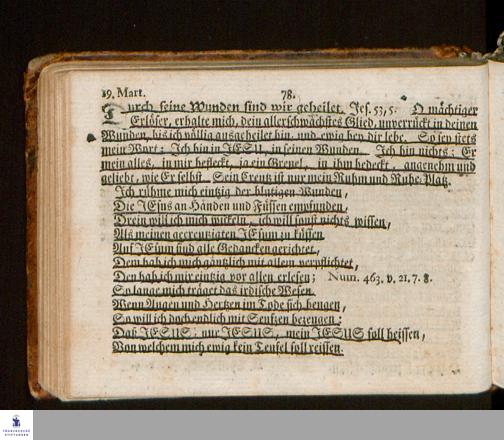 19. Mart. 78.
Durch seine Wunden sind wir geheilet. Jes. 53, 5. O mächtiger
Erlöser, erhalte mich, dein allerschwächstes Glied, unverrückt in deinen
Wunden, bis ich völlig ausgeheilet bin, und ewig bey dir lebe. So sey stets
mein Wort: Ich bin in JESU, in seinen Wunden. Ich bin nichts; Er
mein alles, in mir befleckt, ja ein Greuel, in ihm bedeckt, angenehm und
geliebt, wie Er selbst. Sein Creutz ist nur mein Ruhm und Ruhe-Platz.
Ich rühme mich eintzig der blutigen Wunden,
Die JEsus an Händen und Füssen empfunden,
Drein will ich mich wickeln, ich will sonst nichts wissen,
Als meinen gecreutzigten JEsum zu küssen
Auf JEsum sind alle Gedancken gerichtet,
Dem hab ich mich gäntzlich mit allem verpflichtet,
Den hab ich mir eintzig vor allen erlesen; Num. 463. v. 21. 7. 8.
So lange mich träget das irdische Wesen.
Wenn Augen und Hertzen im Tode sich beugen,
So will ich doch endlich mit Seufzen bezeugen:
Daß JESUS: nur JESUS, mein JESUS soll heissen,
Von welchem mich ewig kein Teufel soll reissen.
FRANCKESCHE
STIFTUNGEN